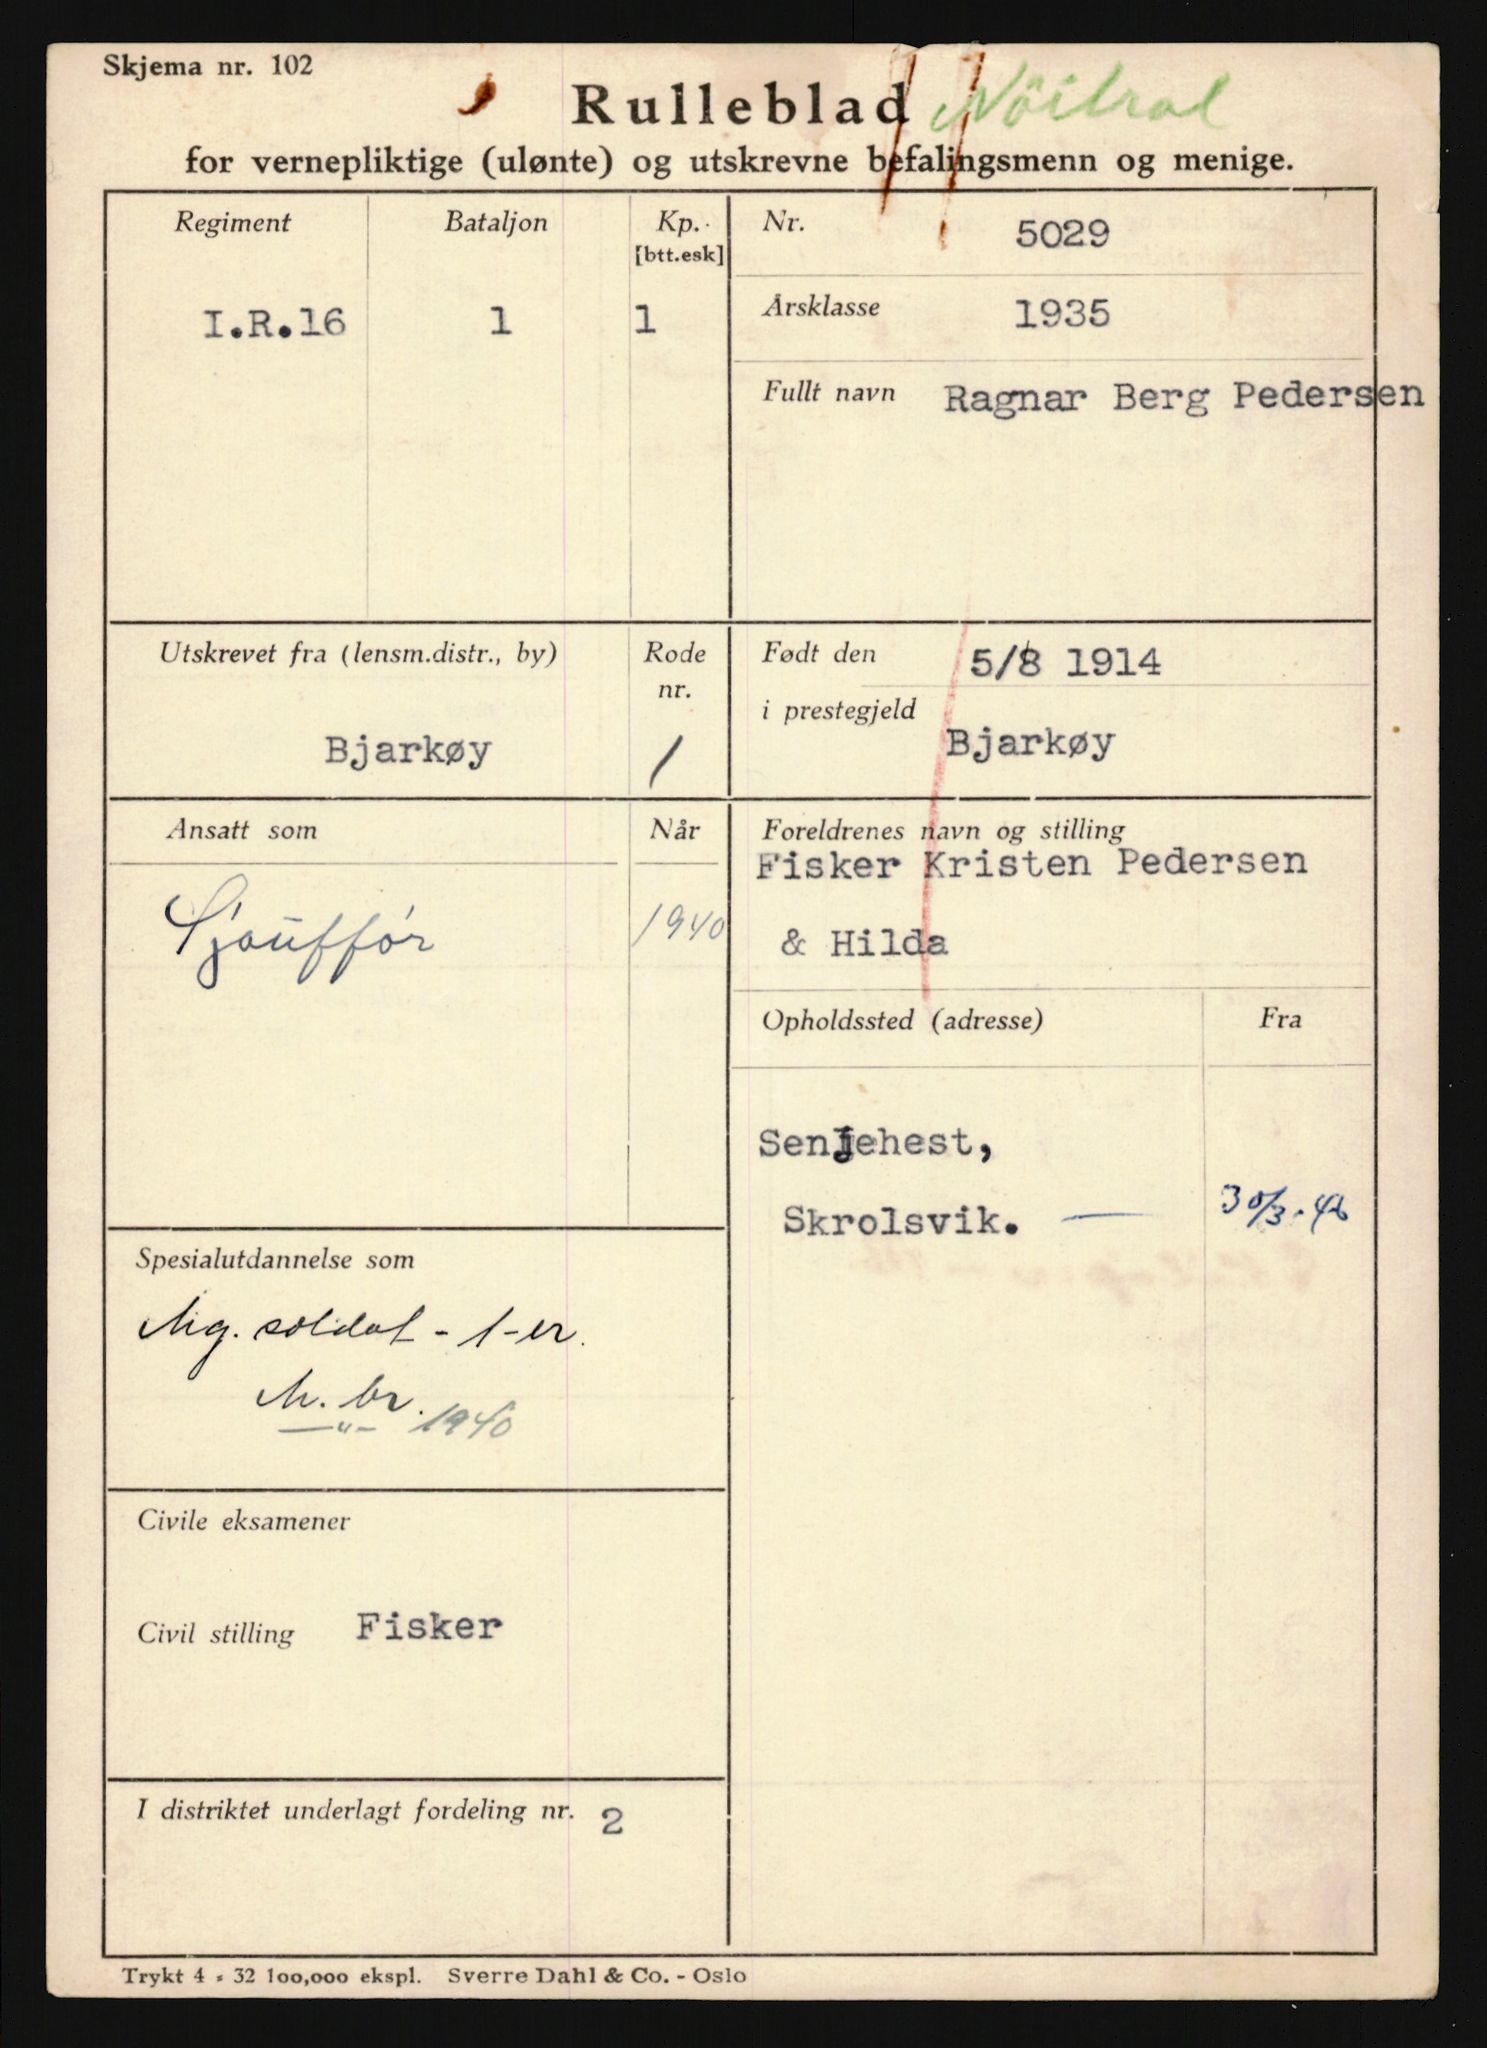 Skjema nr. 102
Rulleblad Nöitral
for vernepliktige (ulønte) og utskrevne befalingsmenn og menige.
Regiment
I.R.16
Bataljon
1
Kp.
[btt.esk]
1
Nr. 5029
Årsklasse 1935
Fullt navn Ragnar Berg Pedersen
Utskrevet fra (lensm.distr., by)
Bjarkøy
Rode
nr.
1
Født den 5/8 1914
i prestegjeld
Bjarkøy
Ansatt som
Sjouffór
Når
1940
Foreldrenes navn og stilling
Fisker Kristen Pedersen
& Hilda
Opholdssted (adresse)
Senjehest,
Skrolsvik. —
Fra
30/3.46
Spesialutdannelse som
Mg. soldat - 1-er.
M. br.
—"— 1940
Civile eksamener
Civil stilling Fisker
I distriktet underlagt fordeling nr. 2
Trykt 4 - 32 100,000 ekspl. Sverre Dahl & Co. - Oslo